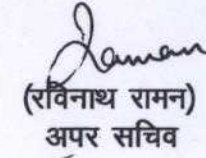 (रविनाथ रामन)
अपर सचिव